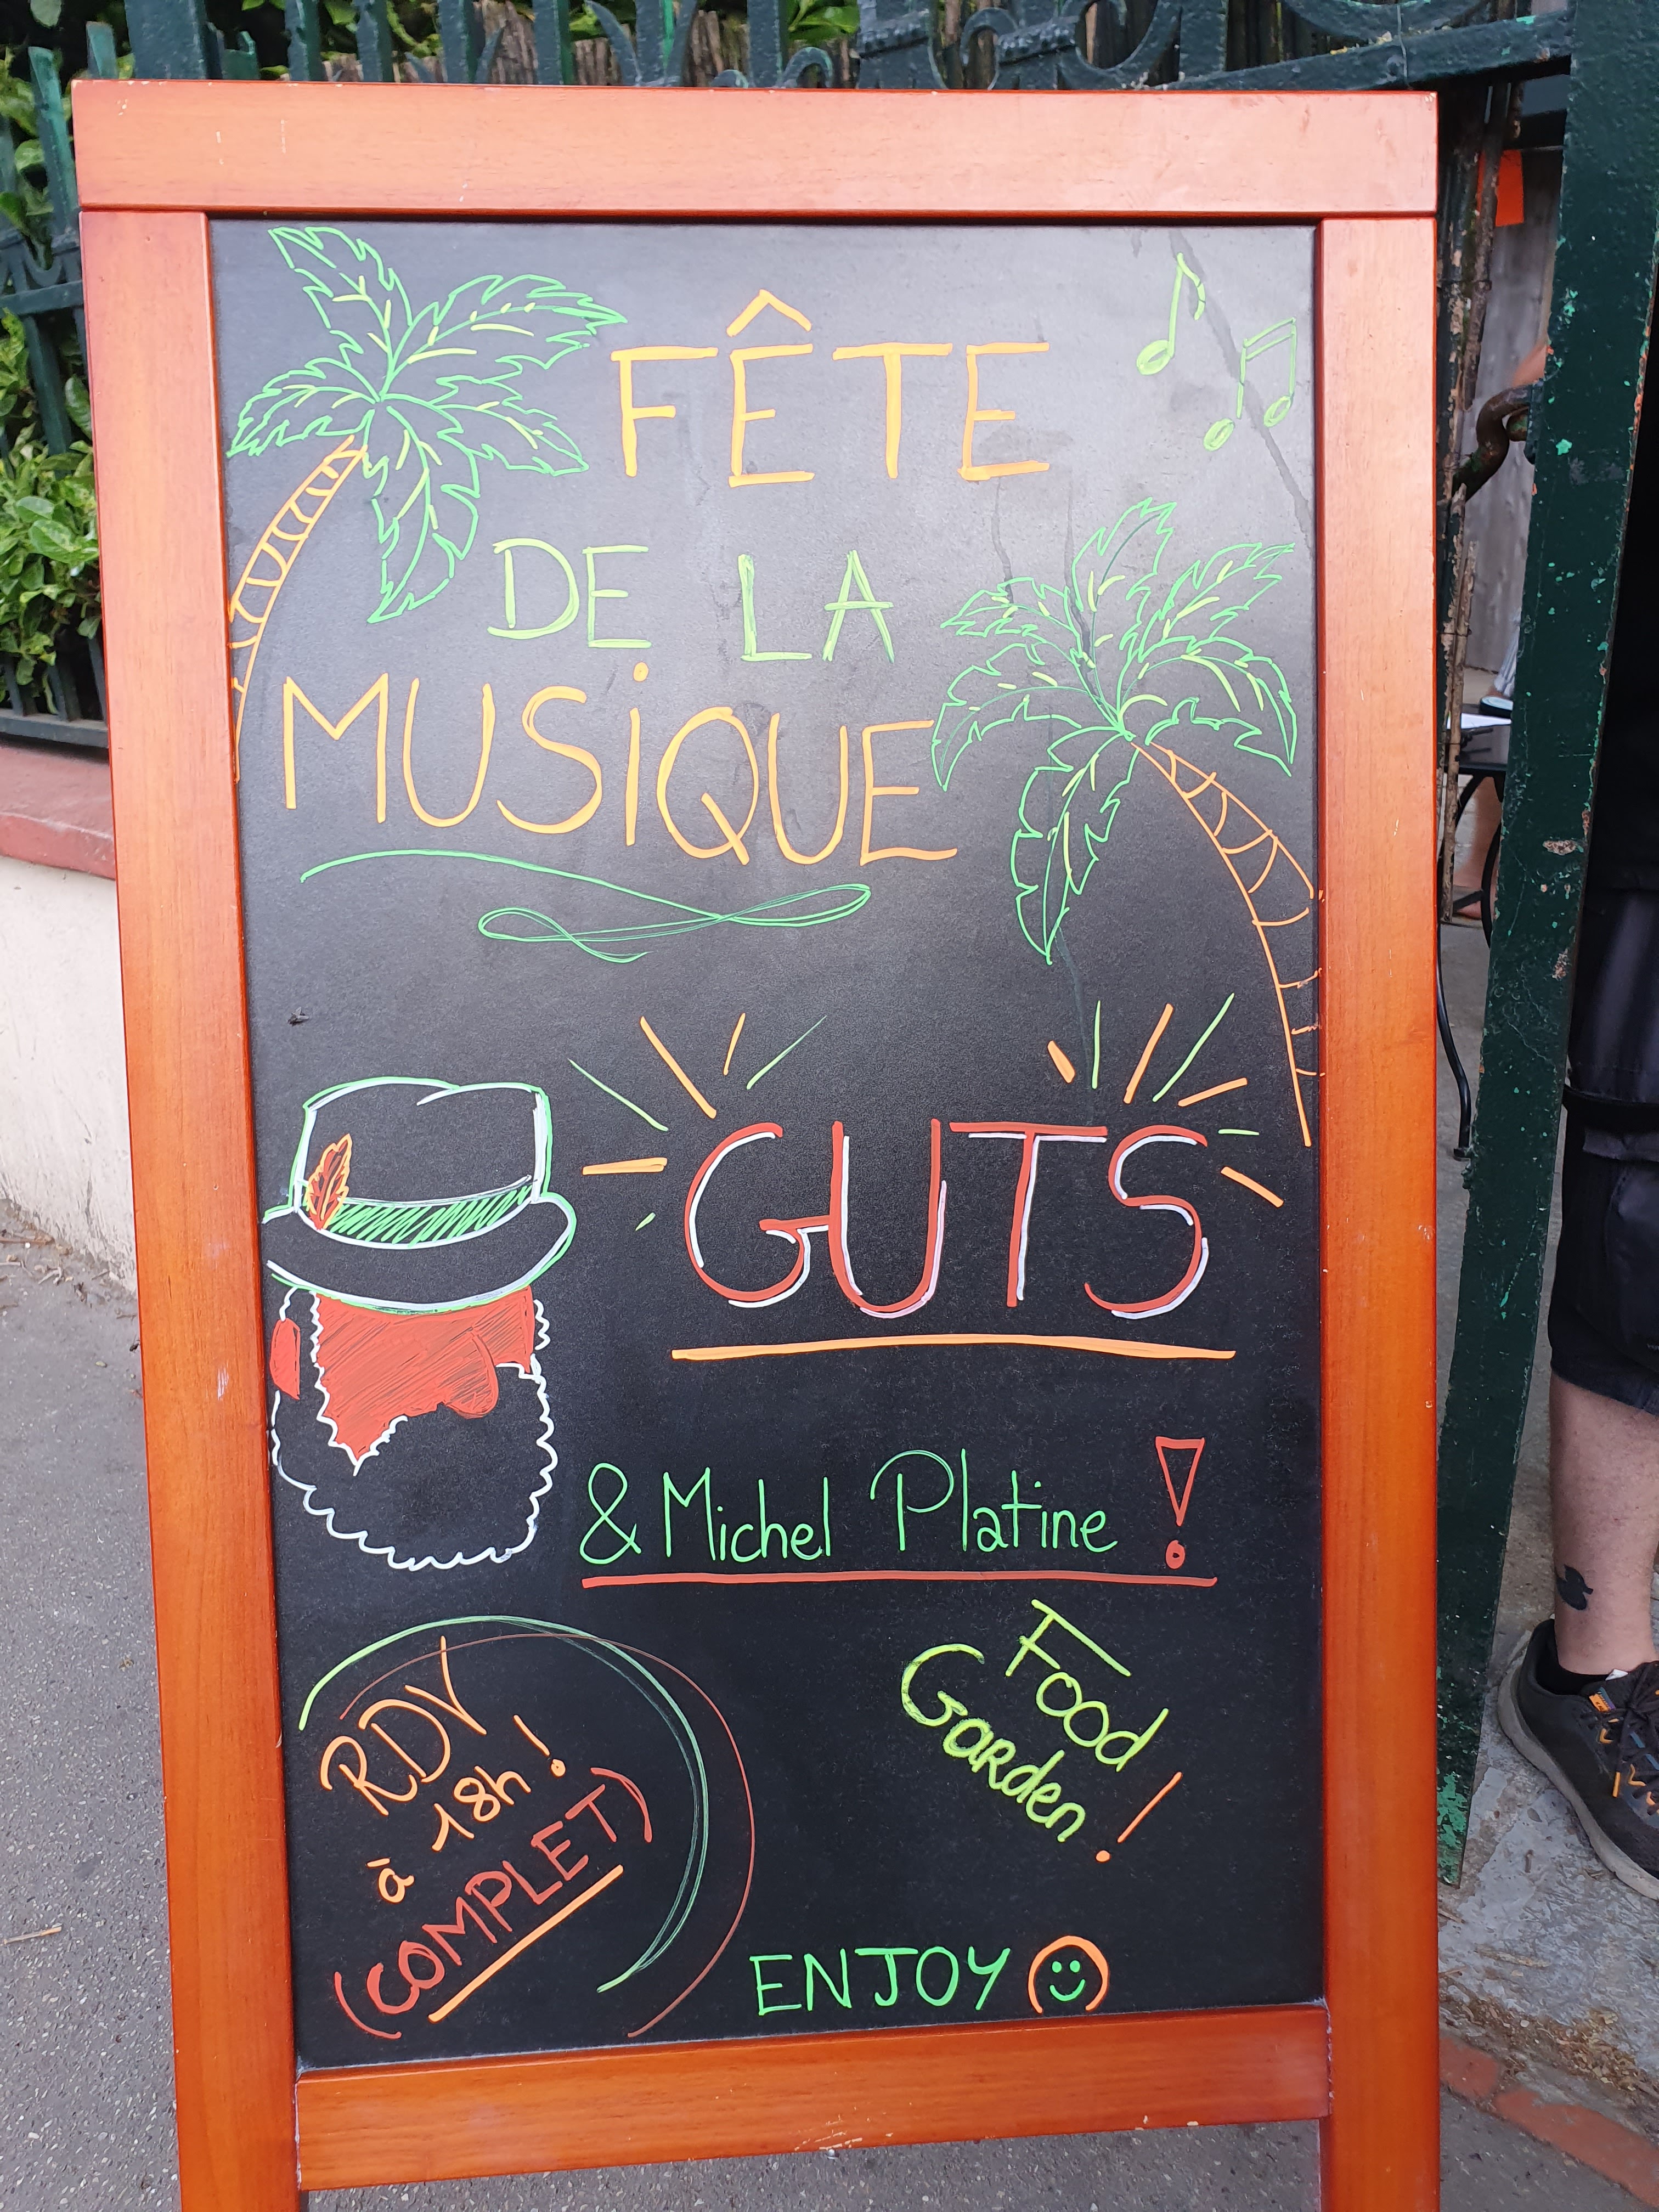 FÊTE
DE LA
MUSiQUE
GUTS
& Michel Platine !
RDV
à 18h !
(COMPLET)
Food
Garden !
ENJOY